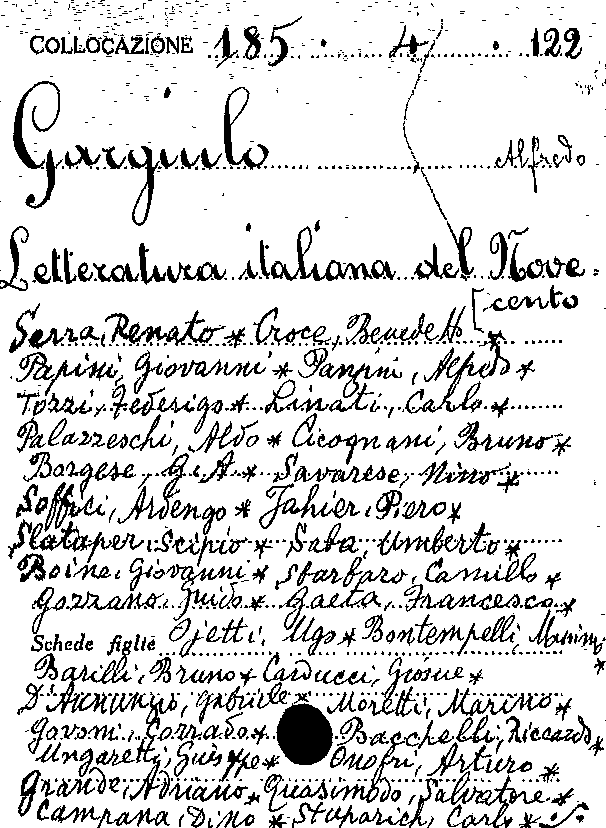 COLLOCAZIONE 185 . 4 . 122
Gargiulo Alfredo
Letteratura italiana del Nove=
[cento
Serra, Renato * Croce, Benedetto *
Papini, Giovanni * Panzini, Alfredo *
Tozzi, Federigo * Linati, Carlo *
Palazzeschi, Aldo * Cicognani, Bruno *
Borgese, G.A * Savarese, Nino *
Soffici, Ardengo * Jahier, Piero *
Slataper, Scipio * Saba, Umberto *
Boine, Giovanni * Sbarbaro, Camillo *
Gozzano, Guido * Gaeta, Francesco *
Schede figlie Ojetti, Ugo * Bontempelli, Massimo *
Barilli, Bruno * Carducci, Giosue *
D'Annunzio, Gabriele * Moretti, Marino *
Govoni, Corrado * Bacchelli, Riccardo *
Ungaretti, Giuseppe * Onofri, Arturo *
Grande, Adriano * Quasimodo, Salvatore *
Campana, Dino * Stuparich, Carlo *